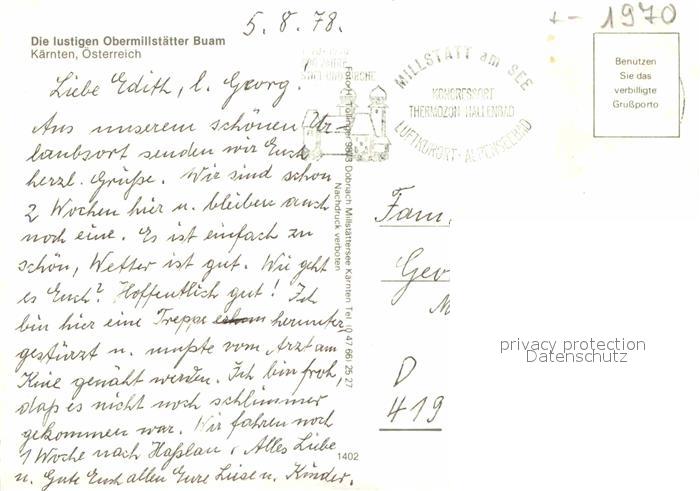 5.8.78.
1970
Die lustigen Obermillstätter Buam
Kärnten, Österreich
Liebe Edith, l. Georg!
Aus unserem schönen Ur-
laubsort senden wir Euch
herzl. Grüße. Wir sind schon
2 Wochen hier u. bleiben auch
noch eine. Es ist einfach zu
schön, Wetter ist gut. Wie geht
es Euch? Hoffentlich gut! Ich
bin hier eine Treppe herunter
gestürzt u. mußte vom Arzt am
Knie genäht werden. Ich bin froh,
daß es nicht noch schlimmer
gekommen war. Wir fahren noch
1 Woche nach Haßlau. Alles Liebe
u. Gute Euch allen Eure Luise u. Kinder.
1402
9873 Döbriach Millstättersee Kärnten Tel. (0 47 66) 25 27
Nachdruck verboten
MILLSTATT am SEE
KONGRESSORT
THERMOZON HALLENBAD
LUFTKURORT - ALPENSEEBAD
Benutzen
Sie das
verbilligte
Grußporto
Fam.
Geo
M
D
419
privacy protection
Datenschutz